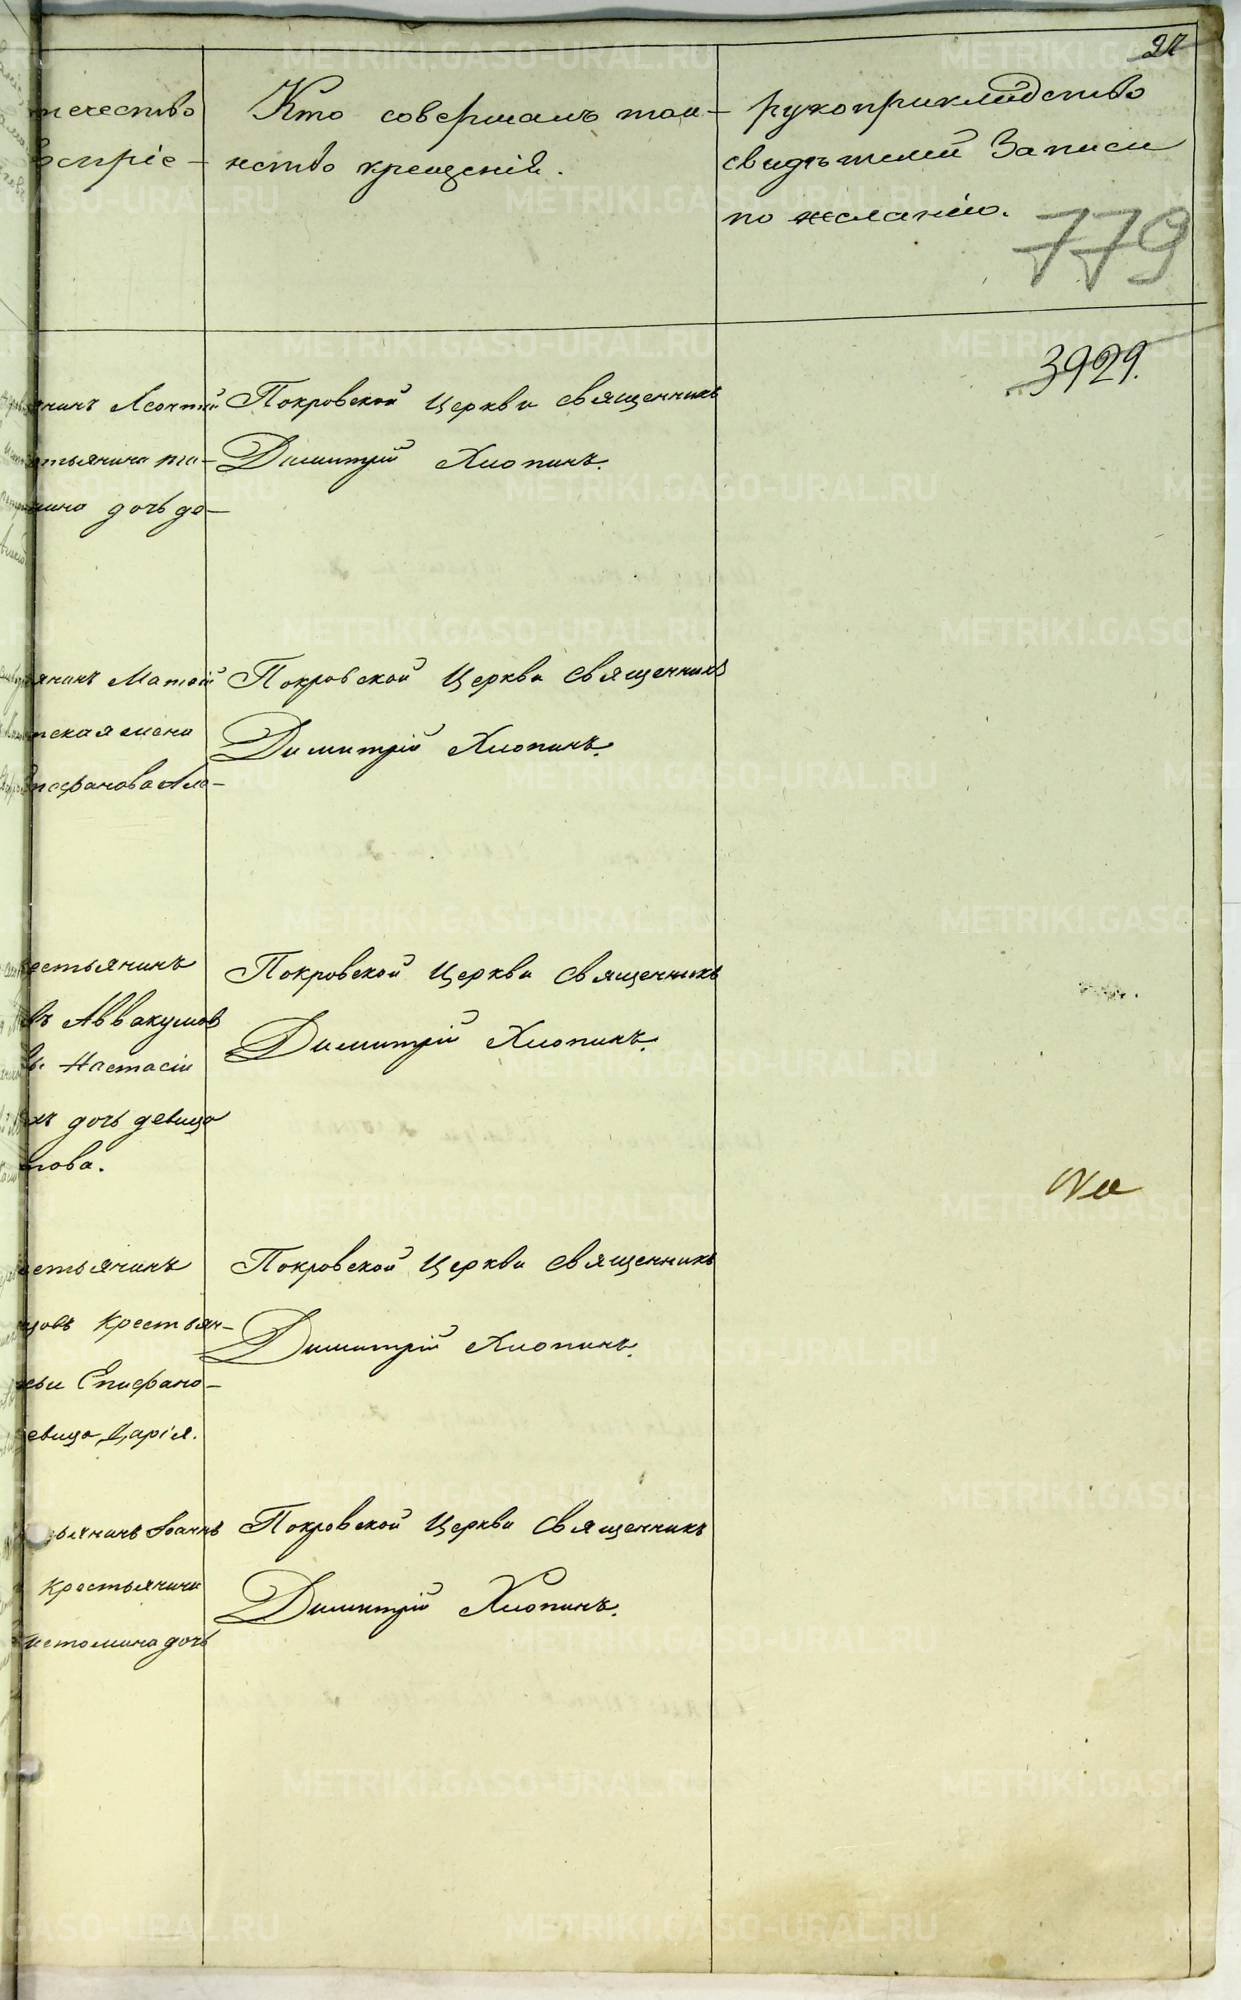 27
течество
Кто совершалъ таи-
нство крещенія.
рукоприкладство
свидѣтелей Записи
по желанію.
779
3929.
Леонтій
дочь де-
Покровской Церкви Священникъ
Димитрій Хлопинъ.
Матѳій
Покровской Церкви Священникъ
Димитрій Хлопинъ.
естьянинъ
въ Аввакумов
Настасіи
дочь девица
това.
Покровской Церкви Священникъ
Димитрій Хлопинъ.
естьянинъ
крестьян-
Епифано-
евица Дарія.
Покровской Церкви Священникъ
Димитрій Хлопинъ.
Іоаннъ
крестьянина
истомина дочь
Покровской Церкви Священникъ
Димитрій Хлопинъ.
METRIKI.GASO-URAL.RU